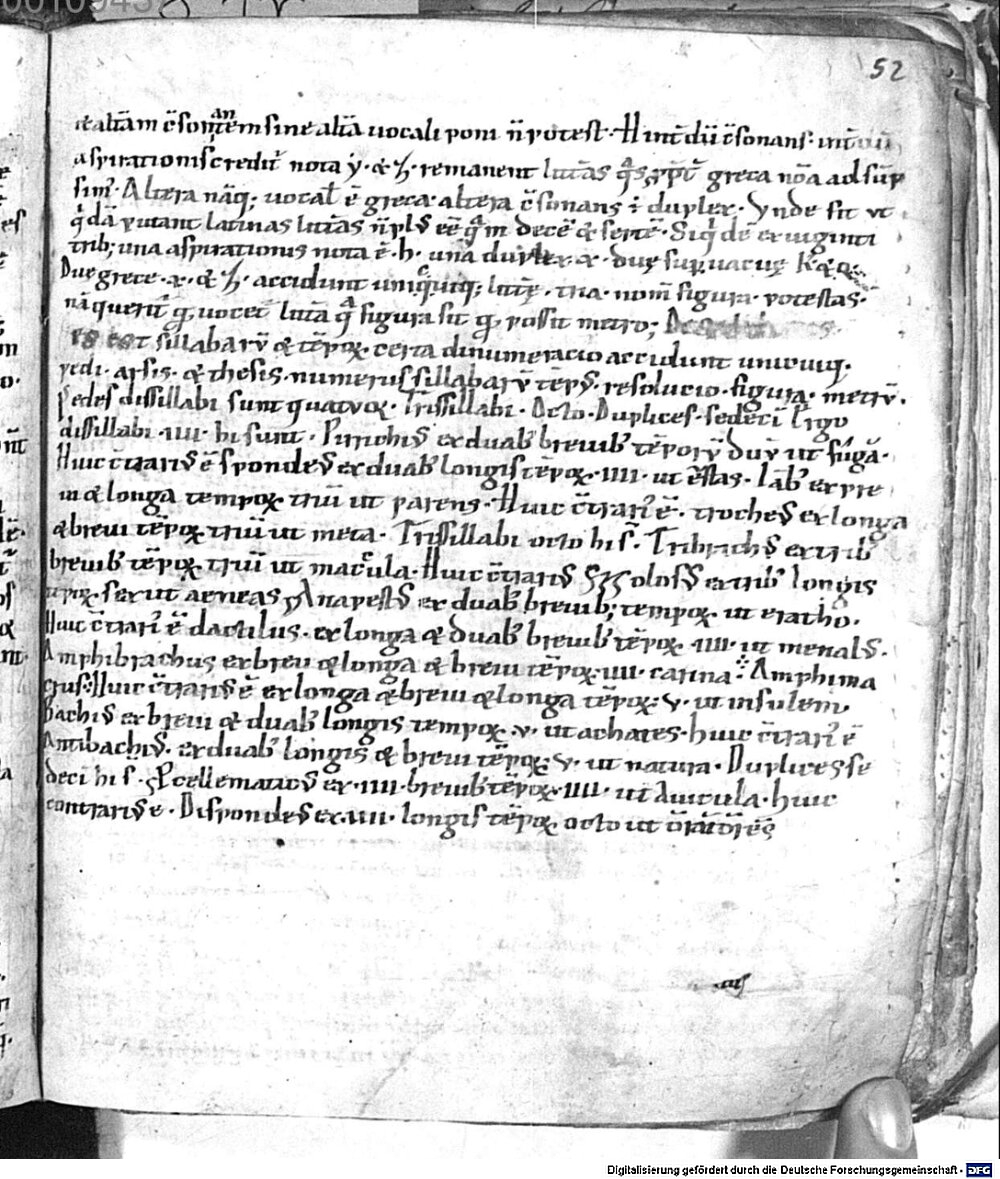 52
& aliā c̄sonantem sine alia uocali poni n̄ potest. H int̄dū c̄sonans. int̄dū
aspirationis credit᷒ nota y. & z. remanent litt̄as q̄s ppt̄ greca nōa adsūp
sim᷒. Altera nāq; uocal̄ ē greca altera c̄sonans ī duplex. Vnde fit ut
q̇dā putant latinas litt̄as n̄ pl᷒ eē q̄m decē & septē. Siq̇dē ex uiginti
trib; una aspirationis nota ē. h. una duplex x. duę superuacuę k & q.
Due grece. y. & z. accidunt unicuiq; litt̄ę. tria. nom̄ figura. potestas.
nā querit᷒ q̇ uocet᷒ litt̄a q̄ figura sit q̇ possit metro;
Pes est sillabarū & tēpoꝝ certa dinumeracio accidunt unicuiq.
pedi. arsis. & thesis. numerus sillabarū tēp᷒. resolucio. figura. metrū.
Pedes dissillabi sunt quatuor. Trissillabi. Octo. Duplices. sedeci Ergo
dissillabi. IIII. hi sunt. Pirrichi᷒ ex duab᷒ breuib᷒ tēporū duū ut fuga.
Huic c̄trari᷒ ē sponde᷒ ex duab᷒ longis tēpoꝝ. IIII. ut ēstas. Iāb᷒ ex bre
ui & longa tempoꝝ triū ut parens. Huic c̄trari᷒ ē. troche᷒ ex longa
& breui tēpoꝝ triū ut meta. Trissillabi octo hi s̄. Tribrach᷒ ex trib᷒
breuib᷒ tēpoꝝ triū ut macula. Huic c̄trari᷒ Molos᷒ ex trib᷒ longis
tēpoꝝ. sex ut aeneas Anapest᷒ ex duab᷒ breuib; tempoꝝ. ut eratho.
Huic c̄trari᷒ ē dactilus. ex longa & duab᷒ breuib᷒ tēpoꝝ. IIII. ut menal᷒.
Amphibrachus ex breui & longa & breui tēpoꝝ. IIII. carina. Amphima
crus. Huic c̄trari᷒ ē ex longa & breui & longa tēpoꝝ. v. ut insulem
Bachi᷒ ex breui & duab᷒ longis tempoꝝ. v. ut achates. huic c̄trari᷒ ē
Antibachi᷒. ex duab᷒ longis & breui tēpoꝝ. v. ut natura. Duplices se
deci hi s̄. Pcellematic᷒ ex. IIII. breuib᷒ tēpoꝝ. IIII. ut Auicula. huic
contrari᷒ e. Disponde᷒ ex. IIII. longis tēpoꝝ octo ut
Digitalisierung gefördert durch die Deutsche Forschungsgemeinschaft - DFG